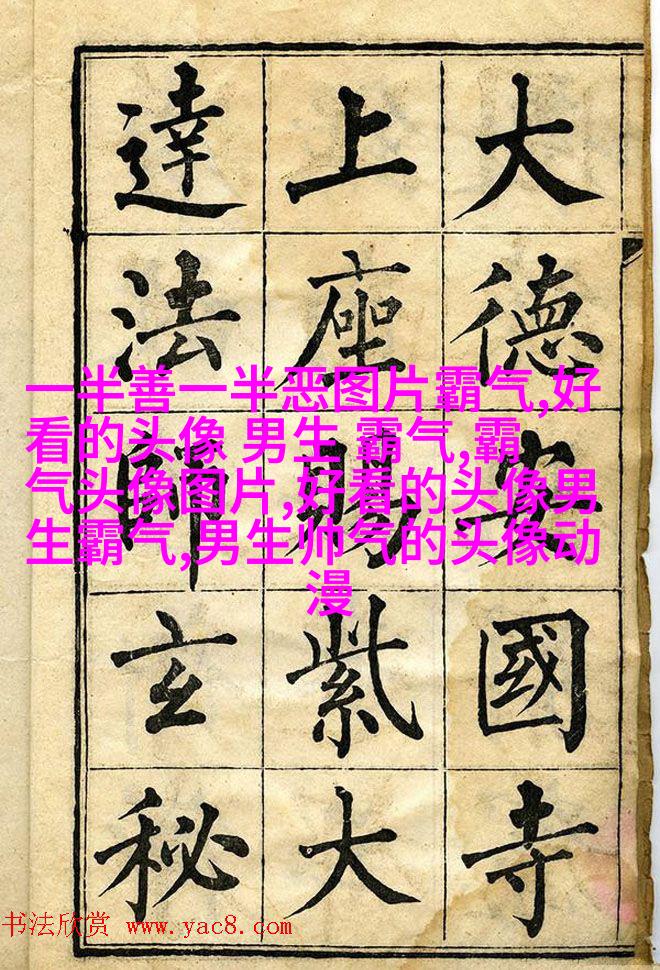 大德安國寺
上座賜紫大
達法師玄秘
一半善一半恶图片霸气,好
看的头像 男生 霸气,霸
气头像图片,好看的头像男
生霸气,男生帅气的头像动
漫
书法欣赏 www.yac8.com